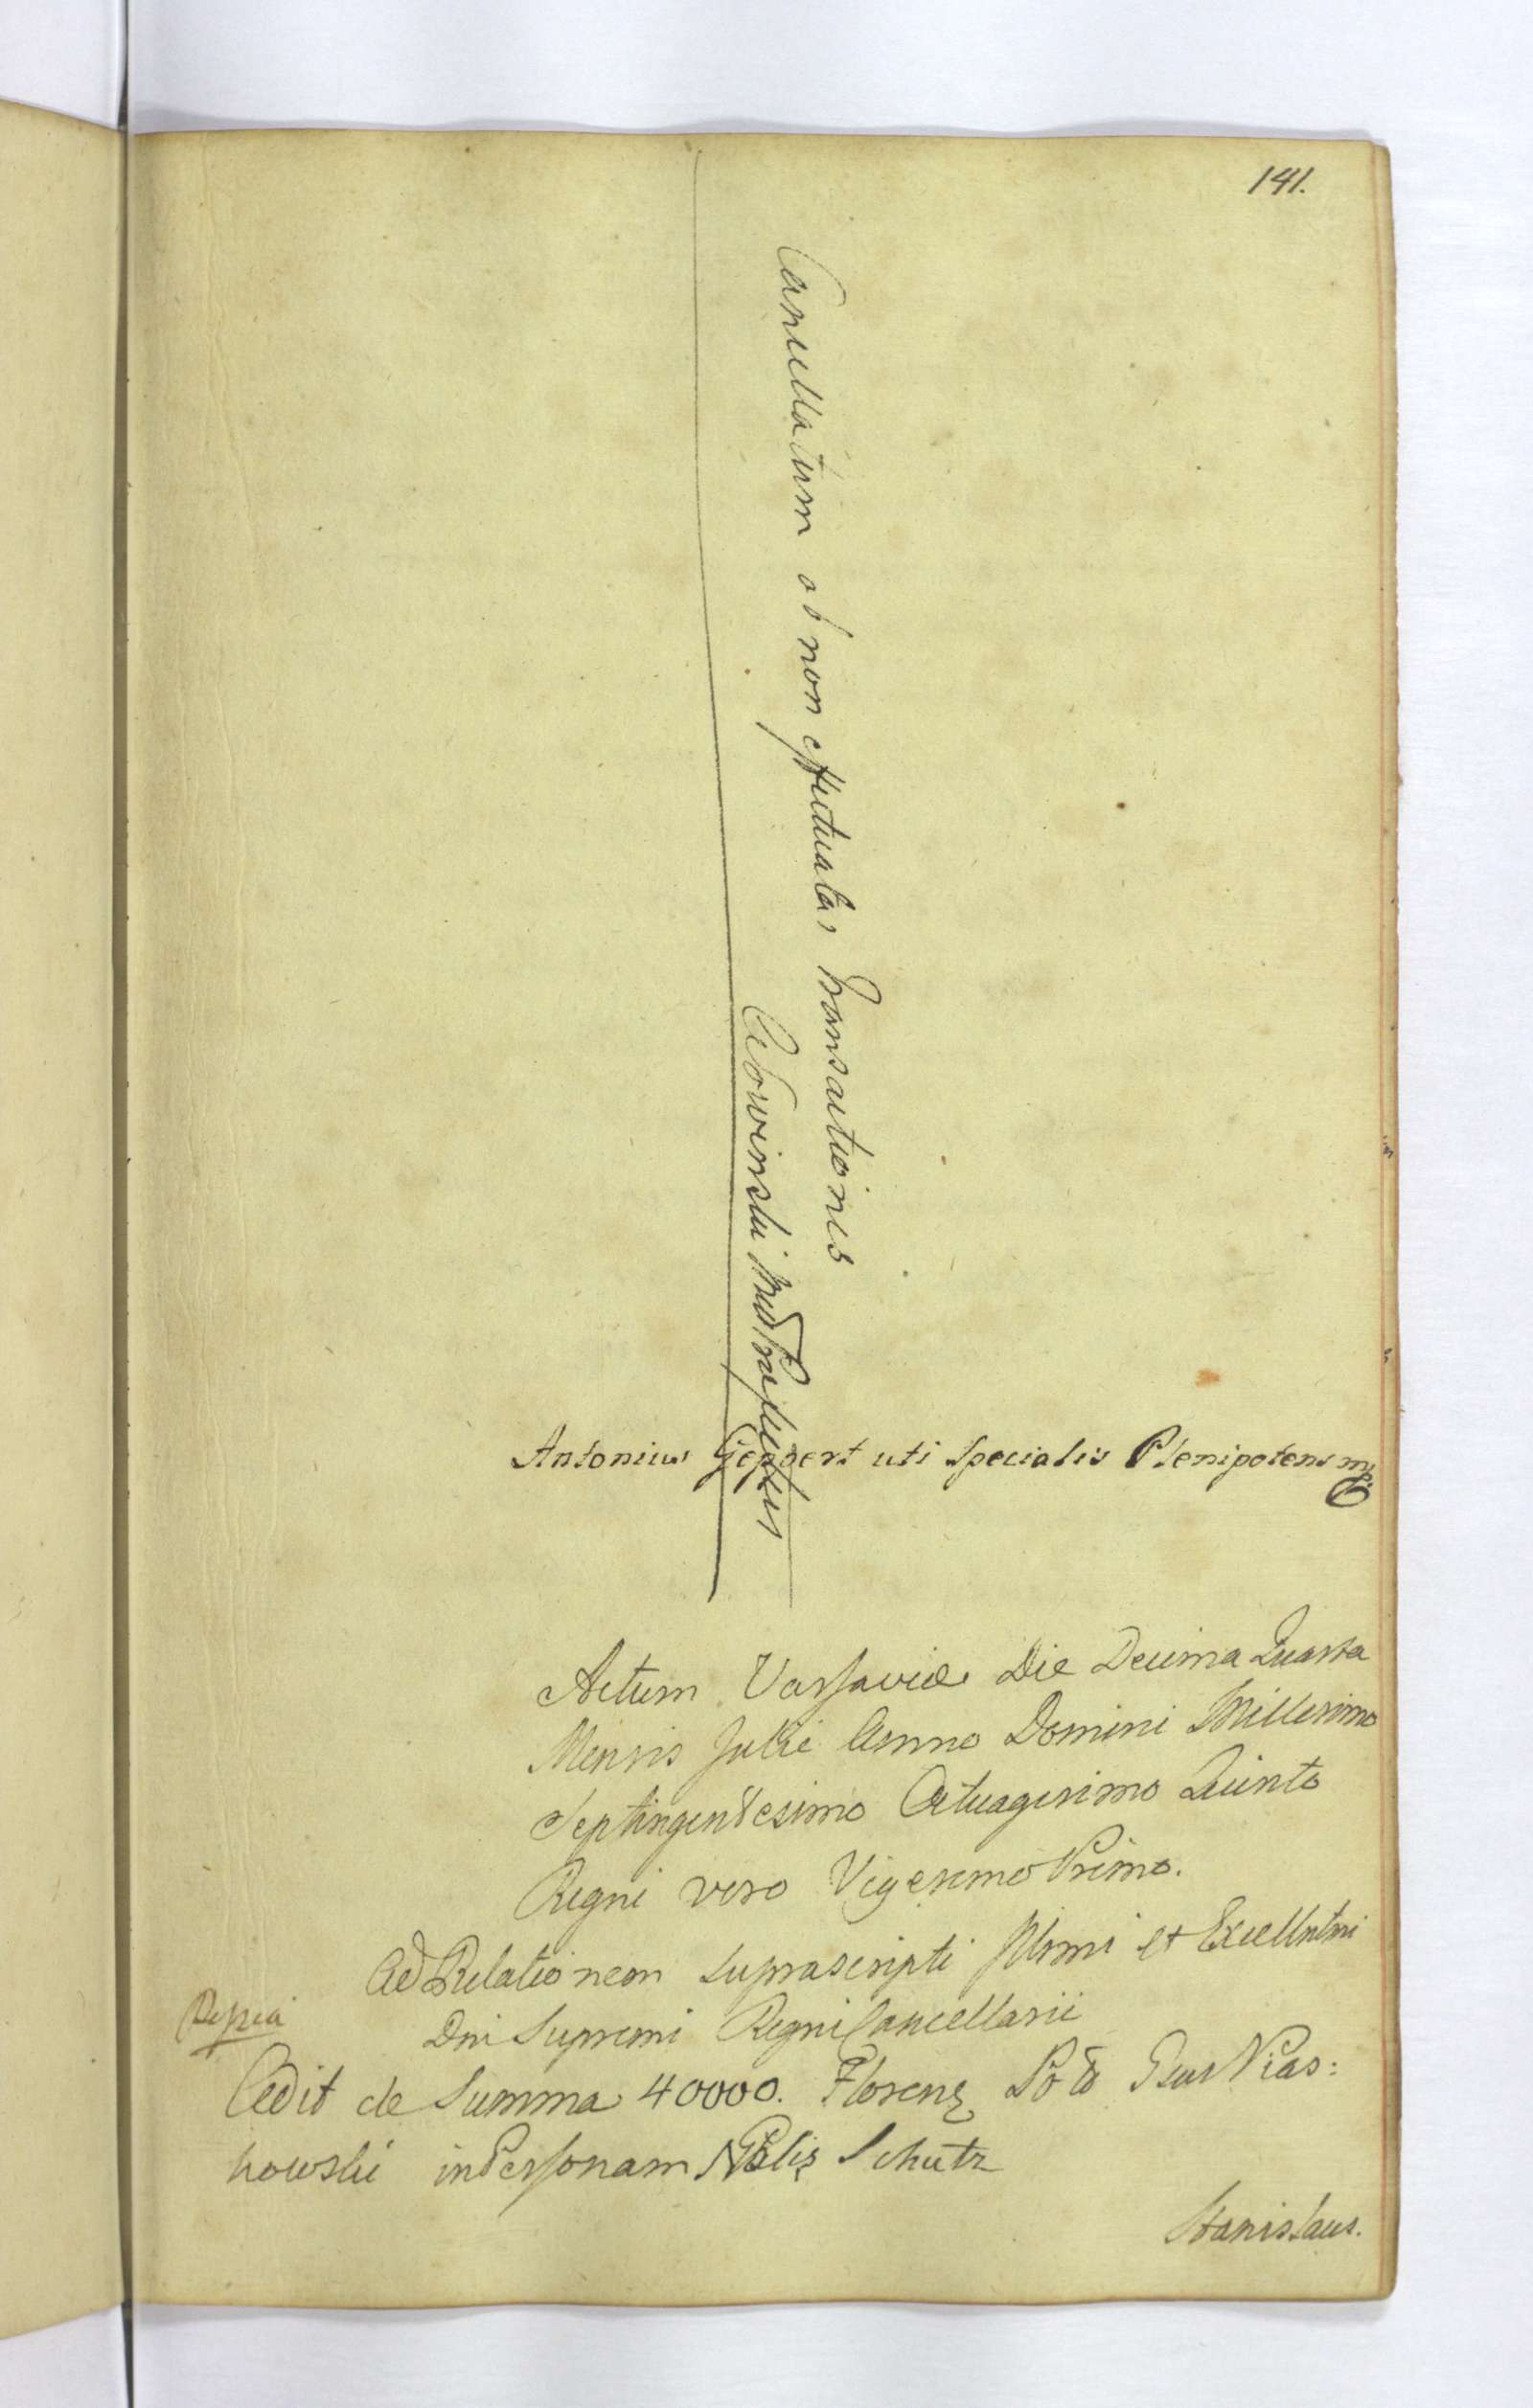 141.
Cancellatum ob non effectuatas Transactiones
Antonius Geppert uti Specialis Plenipotens mp
Actum Varsaviæ Die Decima Quarta
Mensis Julii Anno Domini Millesimo
Septingentesimo Octuagesimo Quinto
Regni vero Vigesimo Primo.
Ad Relationem suprascripti Illmi et Excellntmi
Dni Supremi Regni Cancellarii
Cedit de Summa 40000. Floren Pias:
kowski in Personam Nblis Schutz
Stanislaus.